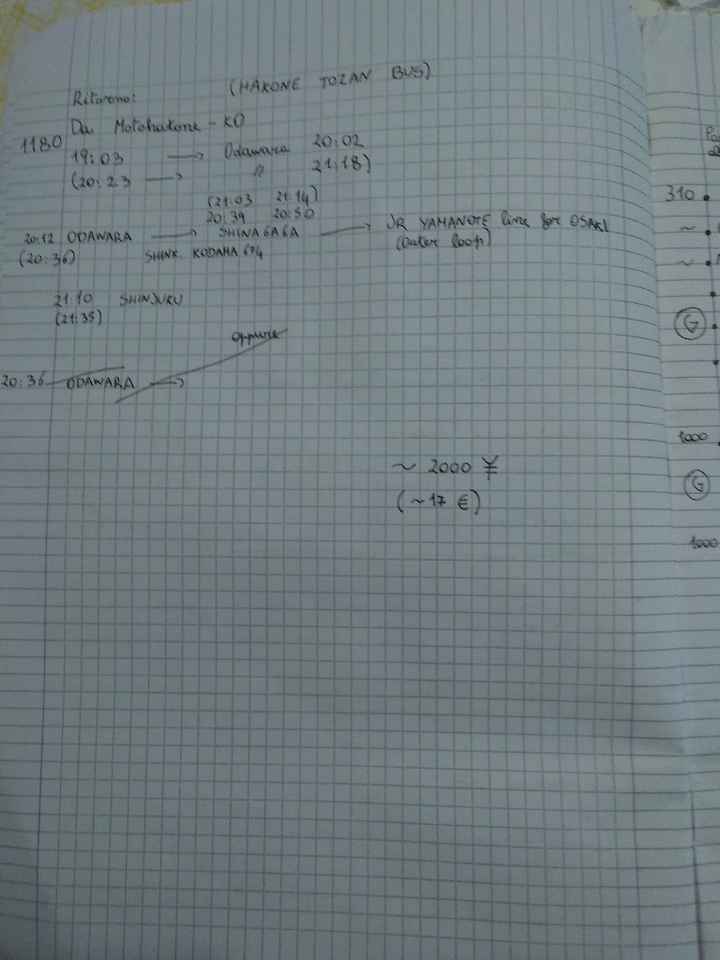 Ritorno: (HAKONE TOZAN BUS)
Da Motohakone-KO
1180
19:03 → Odawara 20:02
(20:23 → " 21:18)
(21:03 21:14)
20:39 20:50
20:12 ODAWARA → SHINAGAGA → JR YAMANOTE line for OSAKI
(20:36) SHINK. KODAMA 674 (Outer loop)
21:10 SHINJUKU
(21:35)
oppure
20:36 ODAWARA →
~ 2000 ¥
(~17 €)
310
~
~
G
1000
G
1000